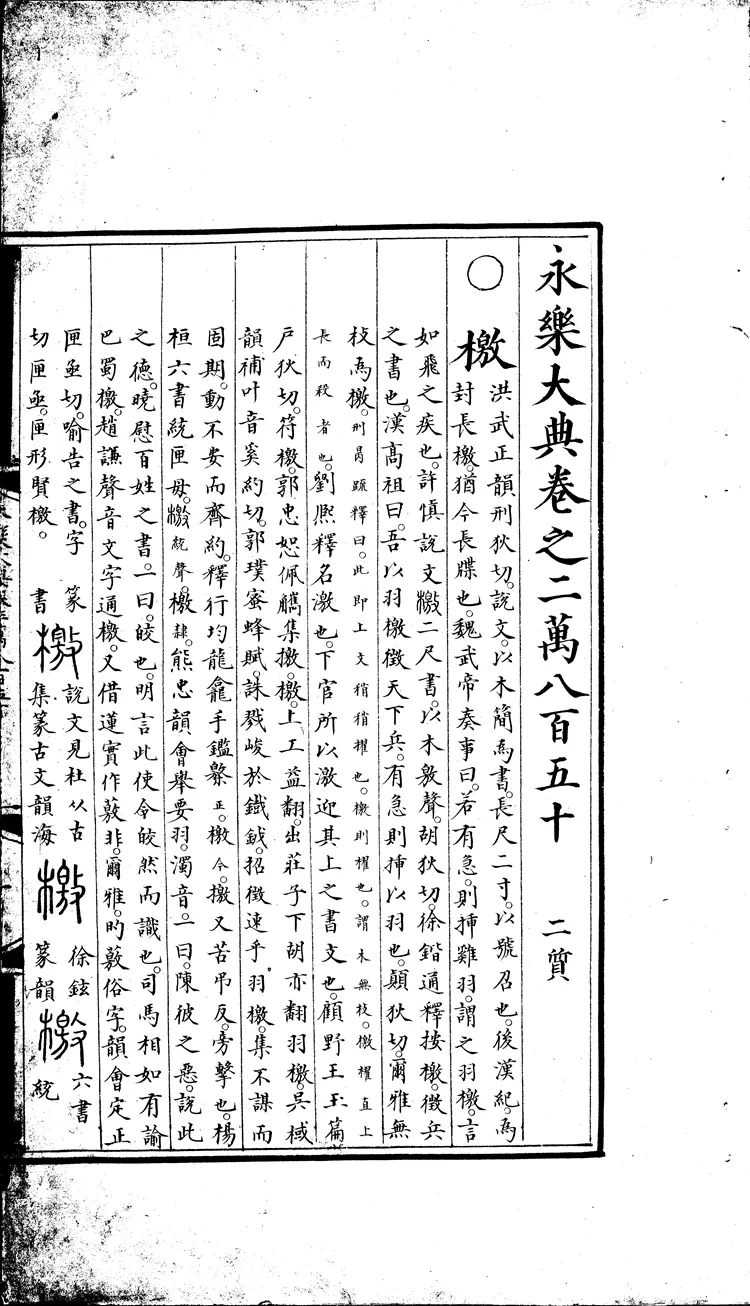 永樂大典卷之二萬八百五十 二質
○檄
洪武正韻刑狄切。說文。以木簡爲書。長尺二寸。以號召也。後漢紀。爲
封長檄。猶今長牒也。魏武帝奏事曰。若有急。則插雞羽。謂之羽檄。言
如飛之疾也。許慎說文檄二尺書。以木敫聲。胡狄切。徐鍇通釋按檄。徵兵
之書也。漢高祖曰。吾以羽檄徵天下兵。有急則揷以羽也。顛狄切。爾雅無
枝爲檄。刑昺䟽釋曰。此即上文梢梢擢也。檄則擢也。謂木無枝。檄擢直上
長而殺者也。劉熈釋名激也。下官所以激迎其上之書文也。顧野王玉篇
戶狄切。符檄。郭忠恕佩觿集撽。檄。上工益翻。出莊子下胡亦翻羽檄。吳棫
韻補叶音奚約切。郭璞蜜蜂賦。誅戮峻於鐵鉞。招徵速乎羽檄。集不謀而
固期。動不安而齊約。釋行均龍龕手鑑檠正。檄今。撽又苦吊反。旁擊也。楊
桓六書統匣毋。檄統聲。檄隸。熊忠韻會舉要羽。濁音。一曰。陳彼之惡。說此
之德。曉慰百姓之書。一曰。皎也。明言此使令皎然而識也。司馬相如有諭
巴蜀檄。趙謙聲音文字通檄。又借蓮實作蔌非。爾雅。旳薂俗字。韻會定正
匣亟切。喻告之書。字
切匣亟。匣形賢檄。
篆書
檄
說文見杜从古
集篆古文韻海
檄
徐鉉
篆韻
檄
六書
統